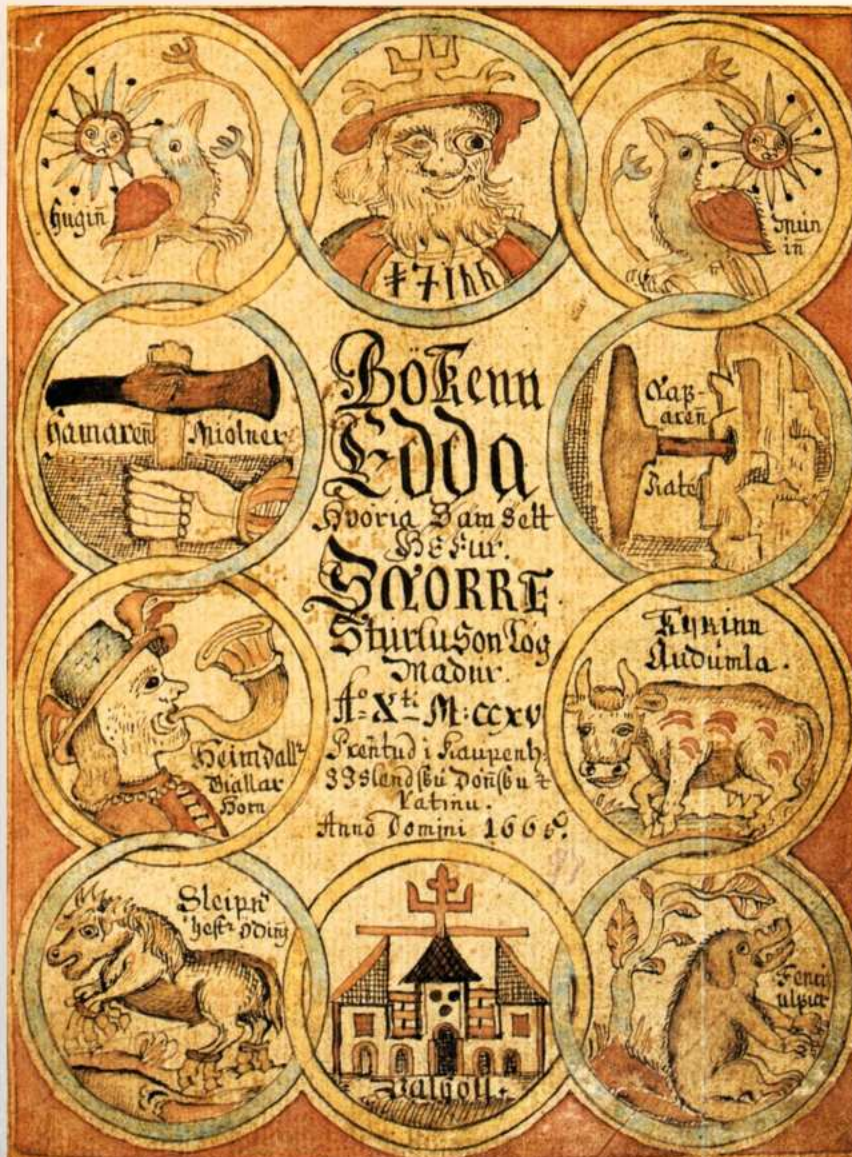 Hugiñ
Mun
iñ
Hamareñ Miolner
Bökenn
Edda
Hvoria Sam Sett
Hefur.
SNORRE.
Sturluson Lög
Madur.
Aº Xti M:ccxv
Prentud i Kaupenh:
Anno Domini 1665.
Rate
Kyrinn
Audumla.
Heimdallr
Giallar
Horn
Sleipn
hestr Odins
Valholl.
Fenris
ulfur